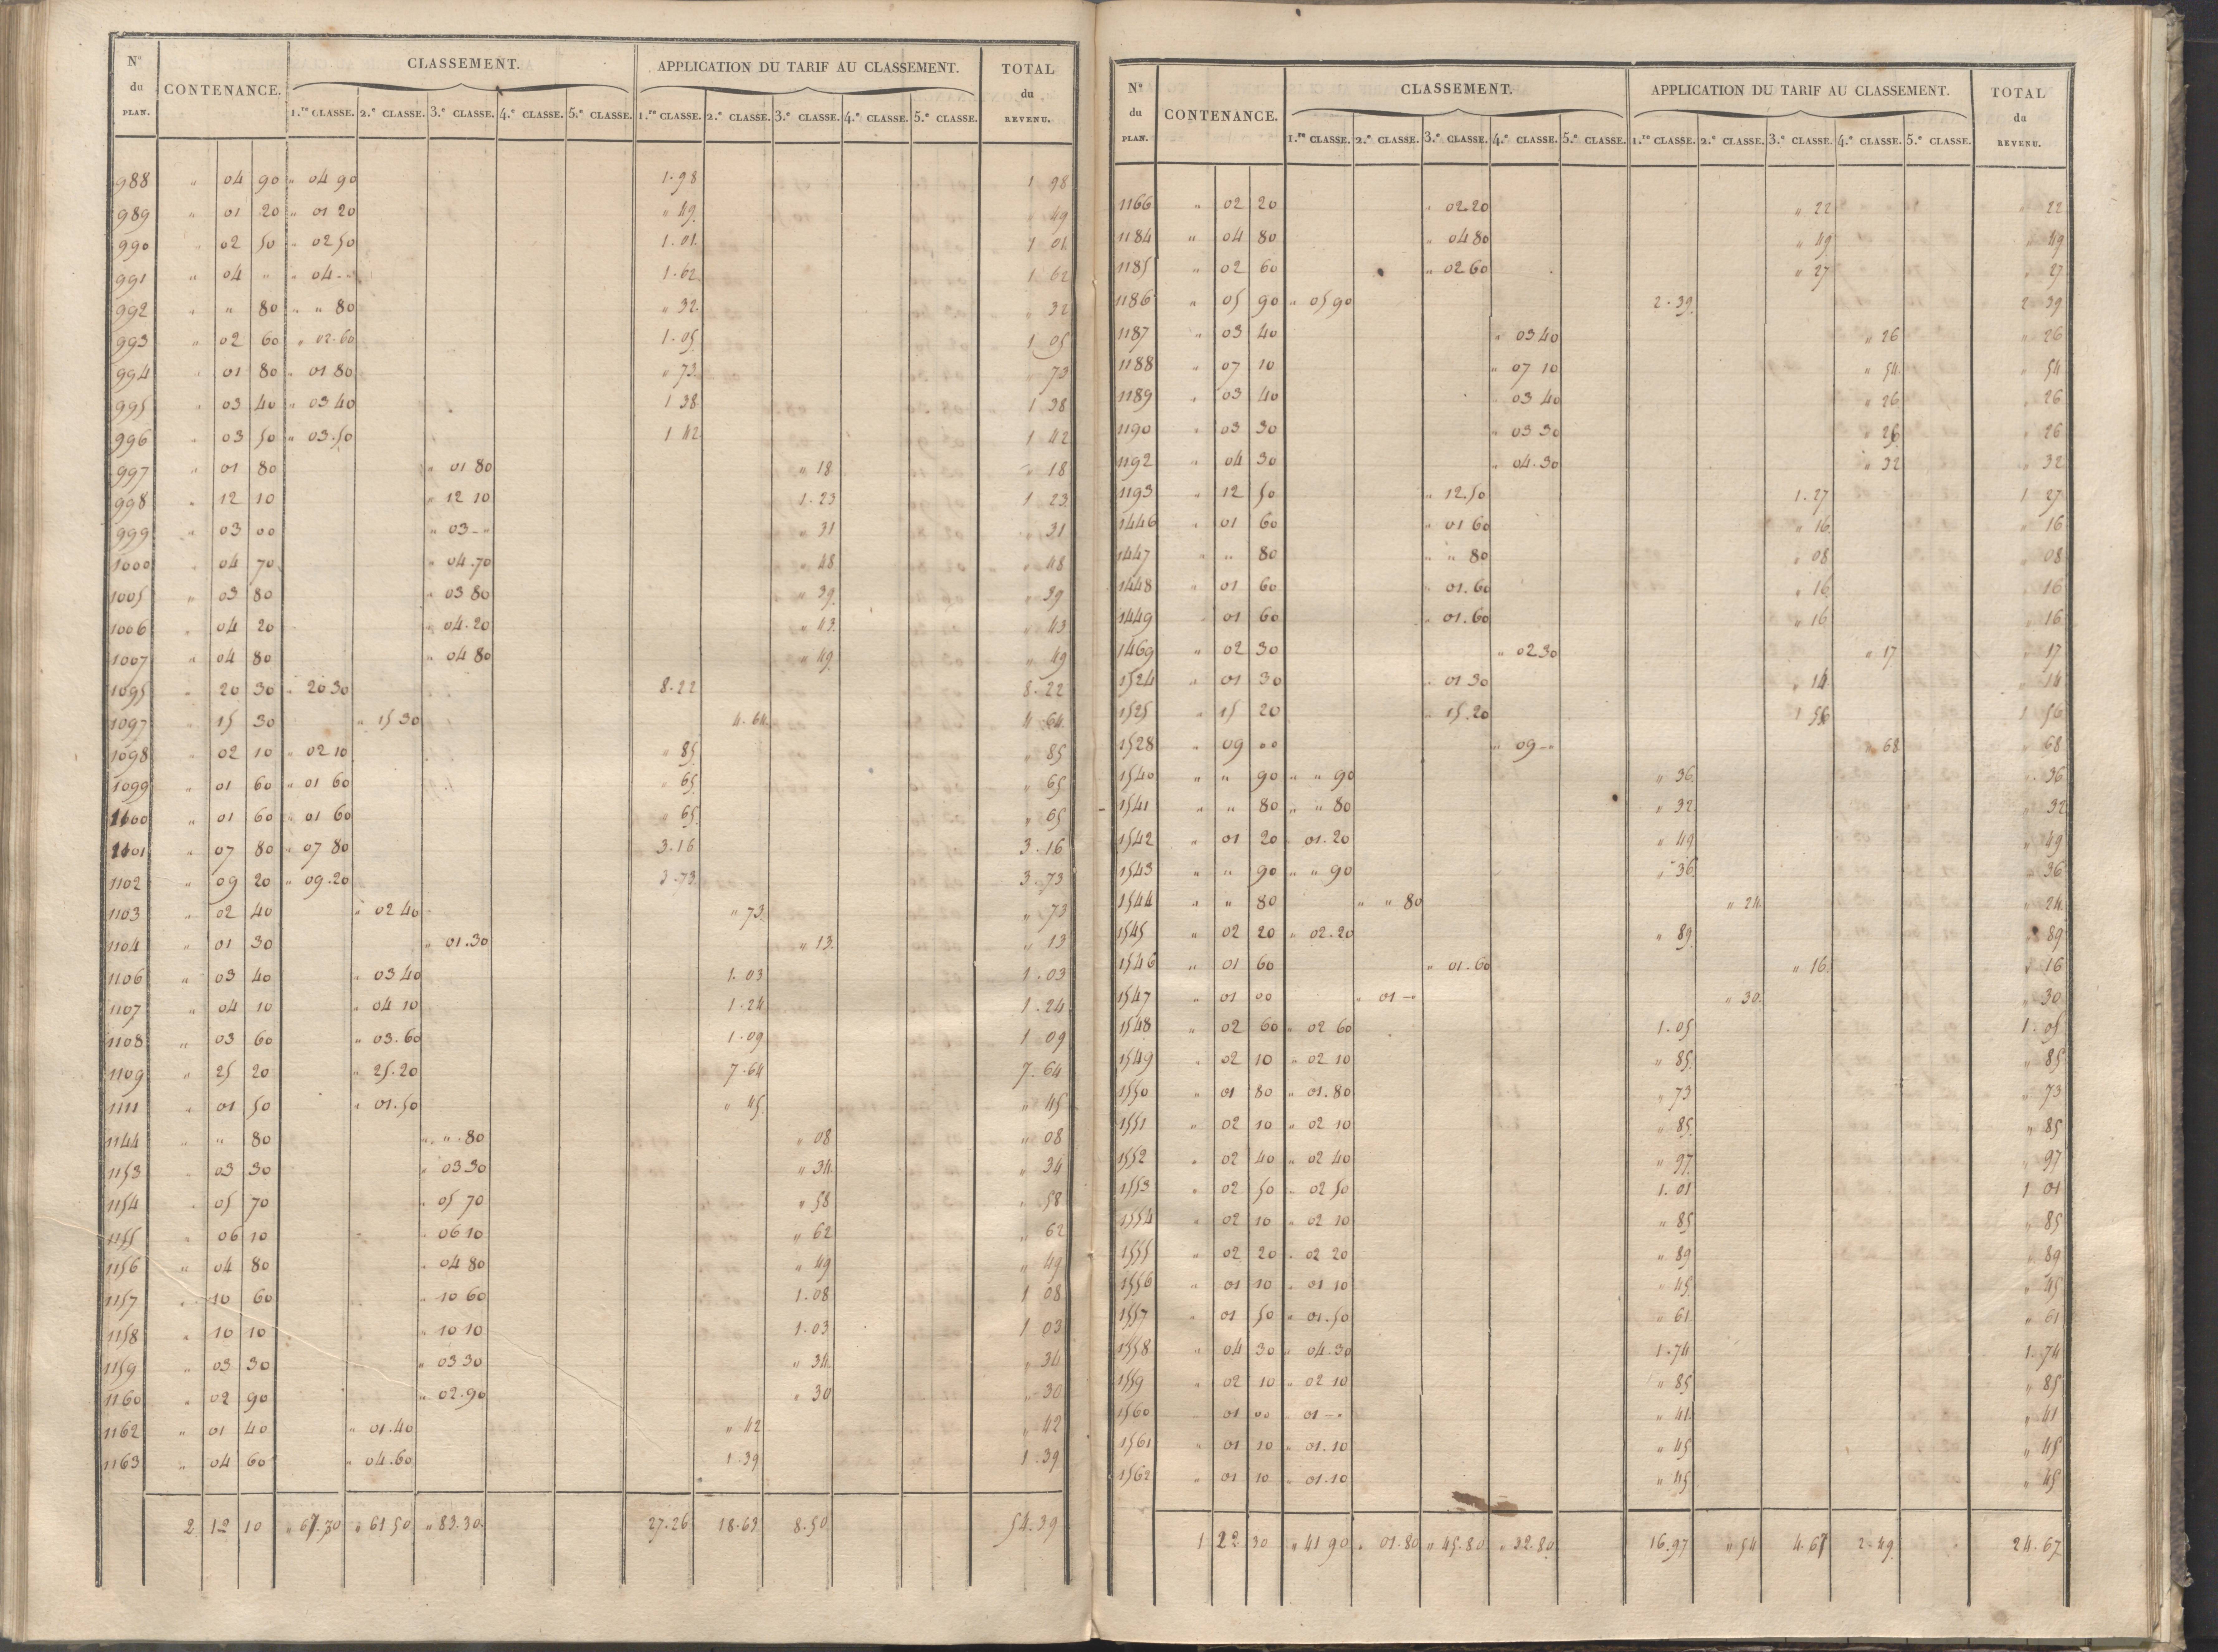 N.º du PLAN. CONTENANCE. CLASSEMENT. APPLICATION DU TARIF AU CLASSEMENT. TOTAL du REVENU.
1.re CLASSE. 2.e CLASSE. 3.e CLASSE. 4.e CLASSE. 5.e CLASSE. 1.re CLASSE. 2.e CLASSE. 3.e CLASSE. 4.e CLASSE. 5.e CLASSE.
988 " 04 90 " 04 90 1.98 1 98
989 " 01 20 " 01 20 " 49 " 49
990 " 02 50 " 02 50 1.01 1 01
991 " 04 " " 04 - " 1.62 1 62
992 " " 80 " " 80 " 32 " 32
993 " 02 60 " 02.60 1.05 1 05
994 " 01 80 " 01 80 " 73 " 73
995 " 03 40 " 03 40 1 38 1 38
996 " 03 50 " 03.50 1 42 1 42
997 " 01 80 " 01 80 " 18 " 18
998 " 12 10 " 12 10 1.23 1 23
999 " 03 00 " 03 - " " 31 " 31
1000 " 04 70 " 04.70 " 48 " 48
1005 " 03 80 " 03 80 " 39 " 39
1006 " 04 20 " 04.20 " 43 " 43
1007 " 04 80 " 04 80 " 49 " 49
1095 " 20 30 " 20 30 8.22 8.22
1097 " 15 30 " 15 30 4.64 4 64
1098 " 02 10 " 02 10 " 85 " 85
1099 " 01 60 " 01 60 " 65 " 65
1100 " 01 60 " 01 60 " 65 " 65
1101 " 07 80 " 07 80 3.16 3.16
1102 " 09 20 " 09.20 3.73 3.73
1103 " 02 40 " 02 40 " 73 " 73
1104 " 01 30 " 01.30 " 13 " 13
1106 " 03 40 " 03 40 1.03 1.03
1107 " 04 10 " 04 10 1.24 1.24
1108 " 03 60 " 03.60 1.09 1 09
1109 " 25 20 " 25.20 7.64 7.64
1111 " 01 50 " 01.50 " 45 " 45
1144 " " 80 " " .80 " 08 " 08
1153 " 03 30 " 03 30 " 34 " 34
1154 " 05 70 " 05 70 " 58 " 58
1155 " 06 10 " 06 10 " 62 " 62
1156 " 04 80 " 04 80 " 49 " 49
1157 " 10 60 " 10 60 1.08 1 08
1158 " 10 10 " 10 10 1.03 1 03
1159 " 03 30 " 03 30 " 34 " 34
1160 " 02 90 " 02.90 " 30 " 30
1162 " 01 40 " 01.40 " 42 " 42
1163 " 04 60 " 04.60 1.39 1.39
2 12 10 " 67.30 " 61 50 " 83.30 27.26 18.63 8.50 54.39
N.º du PLAN. CONTENANCE. CLASSEMENT. APPLICATION DU TARIF AU CLASSEMENT. TOTAL du REVENU.
1.re CLASSE. 2.e CLASSE. 3.e CLASSE. 4.e CLASSE. 5.e CLASSE. 1.re CLASSE. 2.e CLASSE. 3.e CLASSE. 4.e CLASSE. 5.e CLASSE.
1166 " 02 20 " 02.20 " 22 " 22
1184 " 04 80 " 04 80 " 49 " 49
1185 " 02 60 " 02 60 " 27 " 27
1186 " 05 90 " 05 90 2.39 2 39
1187 " 03 40 " 03 40 " 26 " 26
1188 " 07 10 " 07 10 " 54 " 54
1189 " 03 40 " 03 40 " 26 " 26
1190 " 03 30 " 03 30 " 26 " 26
1192 " 04 30 " 04.30 " 32 " 32
1193 " 12 50 " 12.50 1.27 1 27
1446 " 01 60 " 01 60 " 16 " 16
1447 " " 80 " " 80 " 08 " 08
1448 " 01 60 " 01.60 " 16 " 16
1449 " 01 60 " 01.60 " 16 " 16
1469 " 02 30 " 02 30 " 17 " 17
1524 " 01 30 " 01 30 " 14 " 14
1525 " 15 20 " 15.20 1 56 1 56
1528 " 09 00 " 09 - " " 68 " 68
1540 " " 90 " " 90 " 36 " 36
1541 " " 80 " " 80 " 32 " 32
1542 " 01 20 01.20 " 49 " 49
1543 " " 90 " " 90 " 36 " 36
1544 " " 80 " " 80 " 24 " 24
1545 " 02 20 " 02.20 " 89 " 89
1546 " 01 60 " 01.60 " 16 " 16
1547 " 01 00 " 01 - " " 30 " 30
1548 " 02 60 " 02 60 1.05 1.05
1549 " 02 10 " 02 10 " 85 " 85
1550 " 01 80 " 01.80 " 73 " 73
1551 " 02 10 " 02 10 " 85 " 85
1552 " 02 40 " 02 40 " 97 " 97
1553 " 02 50 " 02 50 1.01 1 01
1554 " 02 10 " 02 10 " 85 " 85
1555 " 02 20 " 02 20 " 89 " 89
1556 " 01 10 " 01 10 " 45 " 45
1557 " 01 50 " 01.50 " 61 " 61
1558 " 04 30 " 04.30 1.74 1.74
1559 " 02 10 " 02 10 " 85 " 85
1560 " 01 00 " 01 - " " 41 " 41
1561 " 01 10 " 01.10 " 45 " 45
1562 " 01 10 " 01.10 " 45 " 45
1 22 30 " 41 90 " 01.80 " 45.80 " 32.80 16.97 " 54 4.67 2.49 24.67